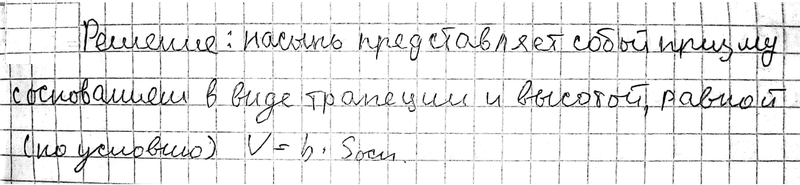 Решение: насыпь представляет собой призму
с основанием в виде трапеции и высотой, равной
(по условию) V = h · Sосн.